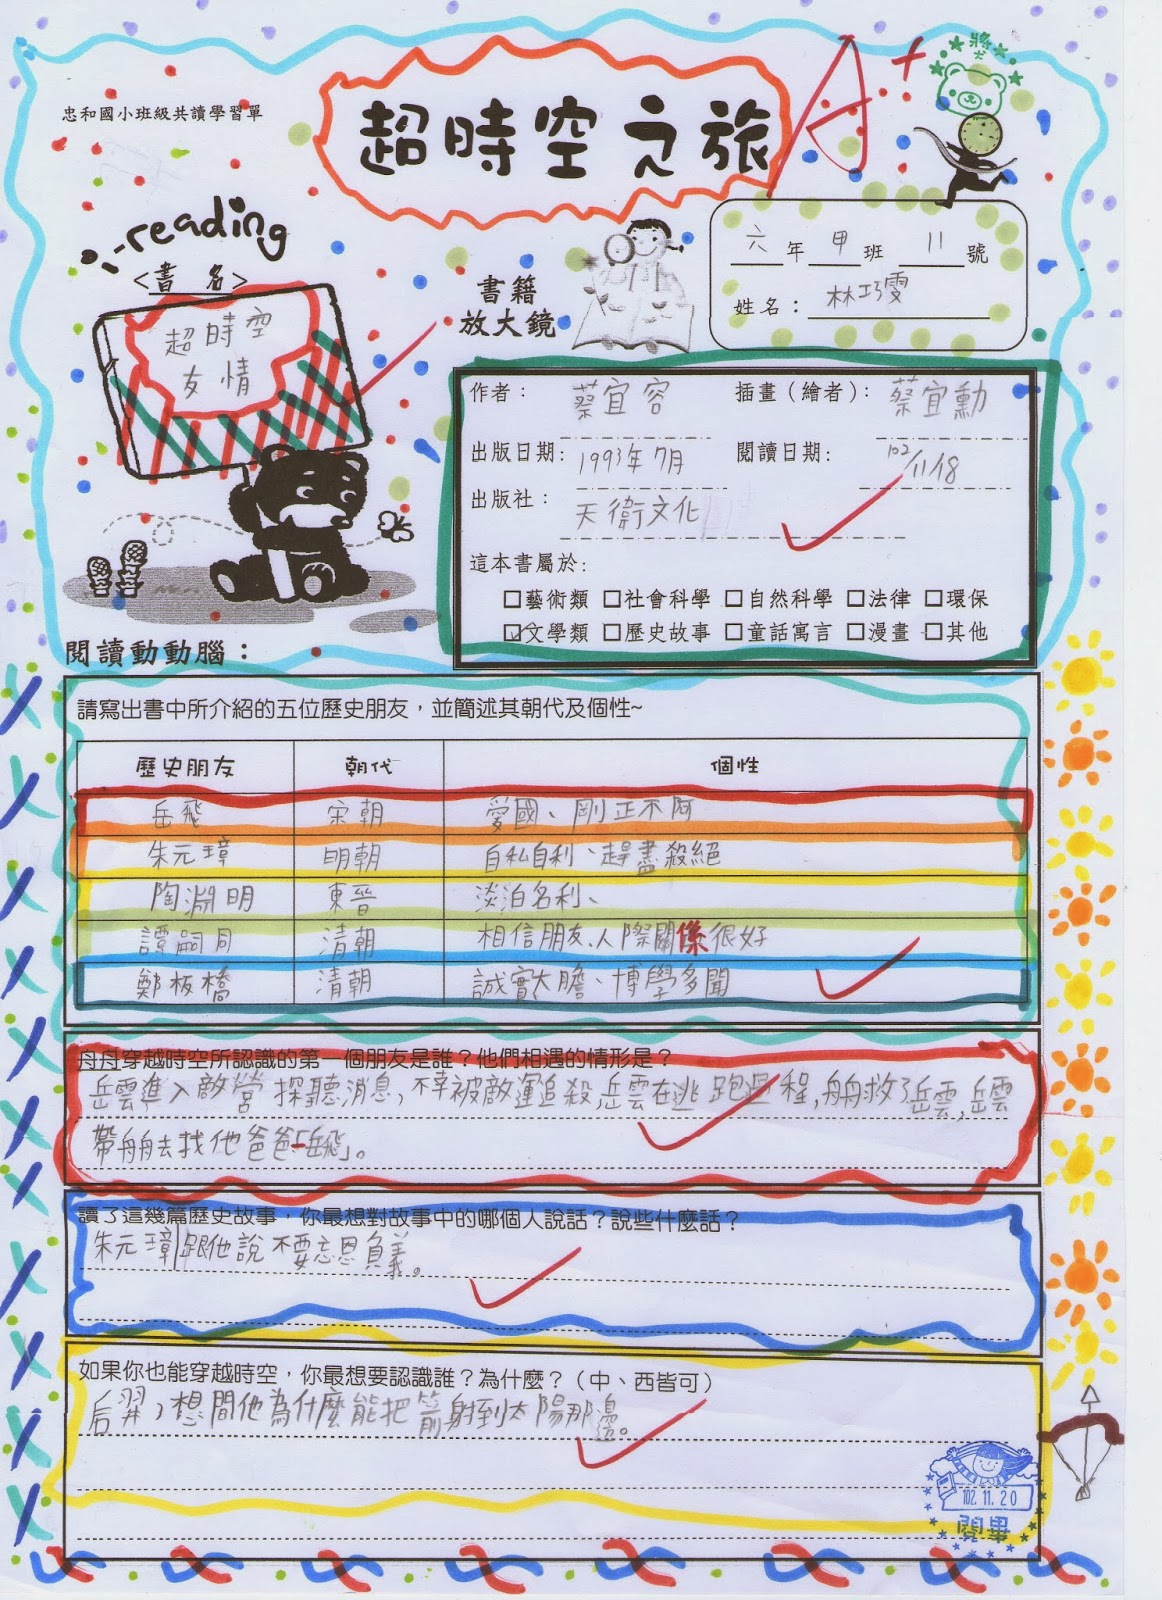 忠和國小班級共讀學習單
超時空之旅
A+
獎
reading
<書 名>
超時空
友情
書籍
放大鏡
六年甲班11號
姓名：林巧雯
作者：蔡宜容 插畫（繪者）：蔡宜勳
出版日期：1993年7月 閱讀日期：102/11/18
出版社：天衛文化
這本書屬於：
□藝術類 □社會科學 □自然科學 □法律 □環保
☑文學類 □歷史故事 □童話寓言 □漫畫 □其他
閱讀動動腦：
請寫出書中所介紹的五位歷史朋友，並簡述其朝代及個性~
歷史朋友 朝代 個性
岳飛 宋朝 愛國、剛正不阿
朱元璋 明朝 自私自利、趕盡殺絕
陶淵明 東晉 淡泊名利、
譚嗣同 清朝 相信朋友、人際關係很好
鄭板橋 清朝 誠實大膽、博學多聞
舟舟穿越時空所認識的第一個朋友是誰？他們相遇的情形是？
岳雲進入敵營探聽消息，不幸被敵運追殺，岳雲在逃跑過程，舟舟救了岳雲，岳雲
帶舟舟去找他爸爸「岳飛」。
讀了這幾篇歷史故事，你最想對故事中的哪個人說話？說些什麼話？
朱元璋，跟他說不要忘恩負義。
如果你也能穿越時空，你最想要認識誰？為什麼？（中、西皆可）
后羿，想問他為什麼能把箭射到太陽那邊。
102.11.20
閱畢